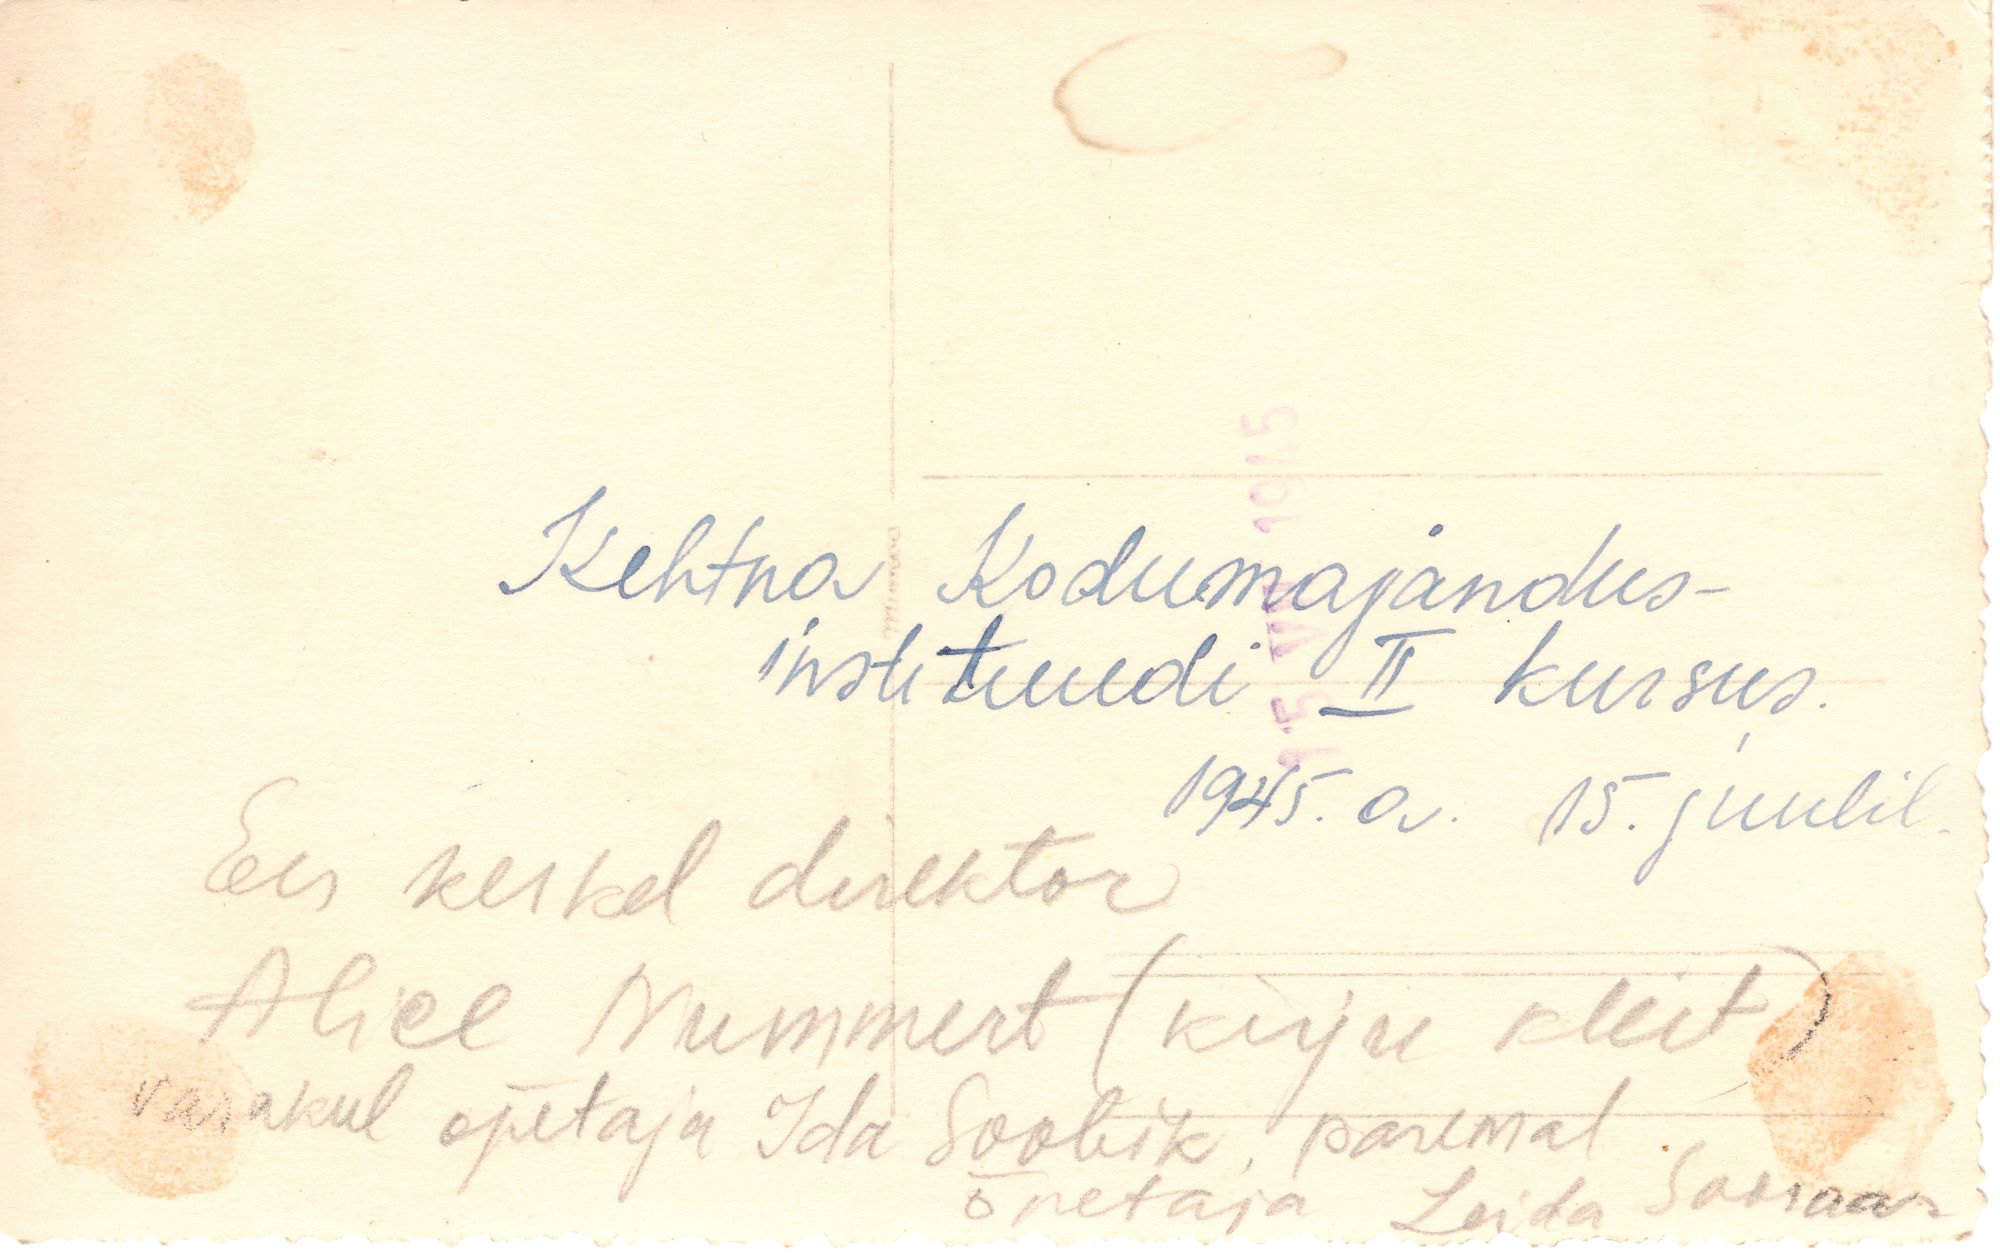 Kehtna Kodumajandus-
instituudi II kursus.
1945. a. 15. juulil.
15 VII 1945
Ees keskel direktor
Alice Nummert (kirju kleit)
vasakul õpetaja Ida Soobik, paremal
õpetaja Leida Soosaar